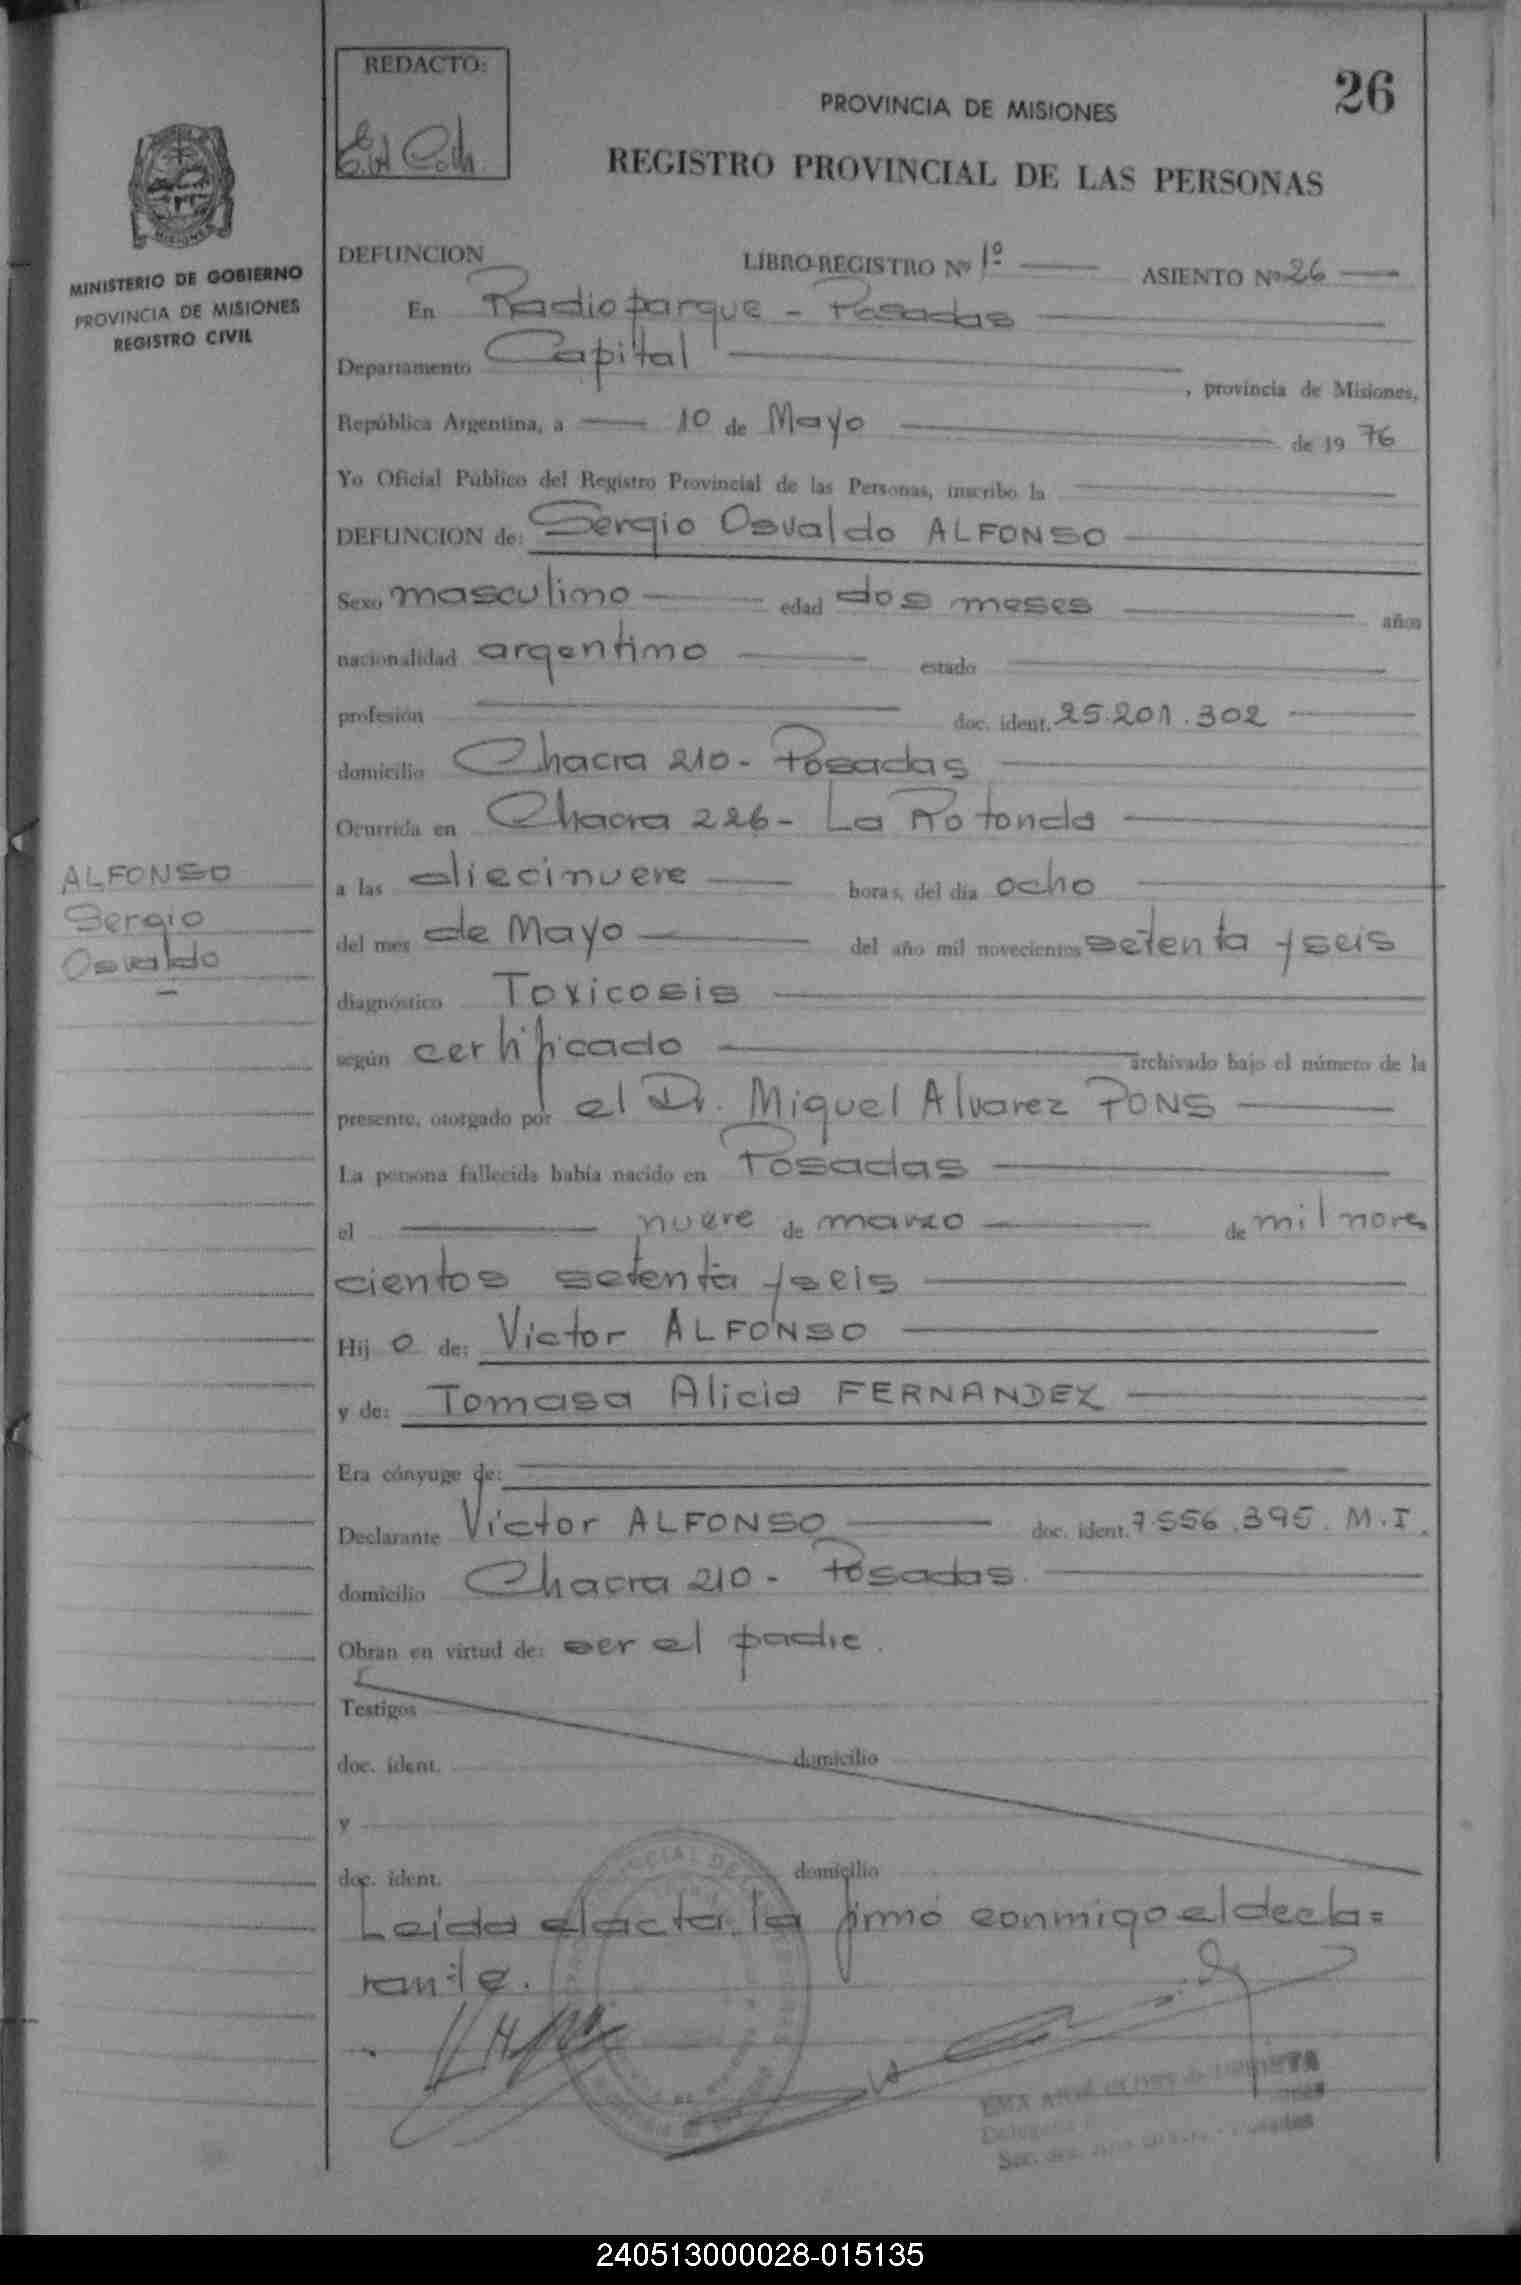 REDACTO:
26
PROVINCIA DE MISIONES
REGISTRO PROVINCIAL DE LAS PERSONAS
MISIONES
MINISTERIO DE GOBIERNO
PROVINCIA DE MISIONES
REGISTRO CIVIL
DEFUNCION LIBRO-REGISTRO Nº 1º ASIENTO Nº 26
En Radioparque - Posadas
Departamento Capital, provincia de Misiones,
República Argentina, a 10 de Mayo de 1976
Yo Oficial Público del Registro Provincial de las Personas, inscribo la
DEFUNCION de: Sergio Osvaldo ALFONSO
Sexo masculino edad dos meses años
nacionalidad argentino estado
profesión doc. ident. 25.201.302
domicilio Chacra 210 - Posadas
Ocurrida en Chacra 226 - La Rotonda
ALFONSO
Sergio
Osvaldo
a las diecinueve horas, del día ocho
del mes de Mayo del año mil novecientos setenta y seis
diagnóstico Toxicosis
según certificado archivado bajo el número de la
presente, otorgado por el Dr. Miguel Alvarez PONS
La persona fallecida había nacido en Posadas
el nueve de marzo de mil nove
cientos setenta y seis
Hij o de: Victor ALFONSO
y de: Tomasa Alicia FERNANDEZ
Era cónyuge de:
Declarante Victor ALFONSO doc. ident. 7.556.395. M.I.
domicilio Chacra 210 - Posadas.
Obran en virtud de: ser el padre.
Testigos
doc. ident. domicilio
y
doc. ident. domicilio
Leida el acta, la firmó conmigo el decla=
rante.
240513000028-015135